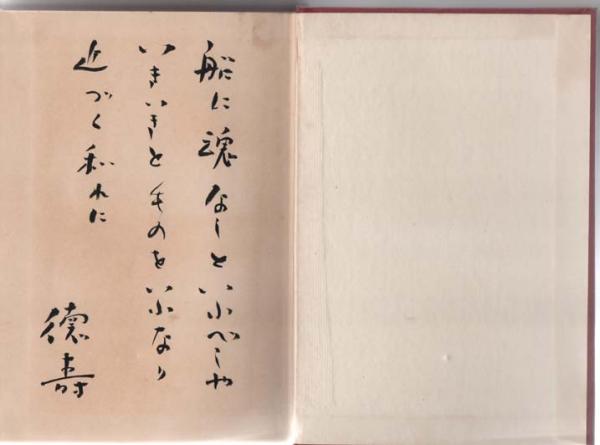 船に魂なしといふべしや
いきいきとものをいふなり
近づく我れに
德壽